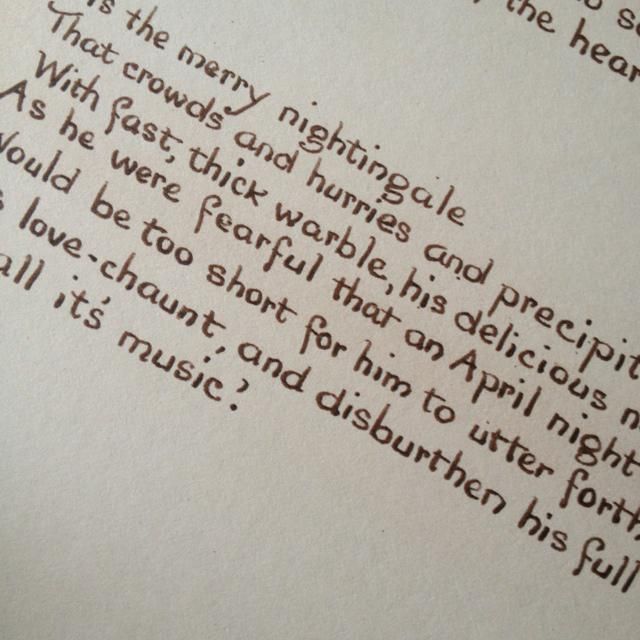 the hear
is the merry nightingale
That crowds and hurries and precipit
With fast, thick warble, his delicious n
As he were fearful that an April night
Would be too short for him to utter forth
s love-chaunt, and disburthen his full
all it's music!